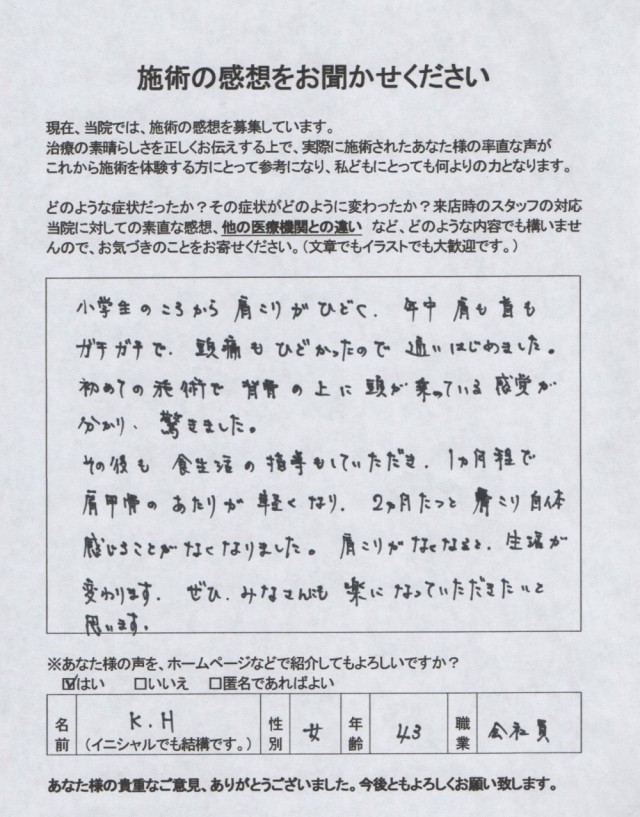 施術の感想をお聞かせください
現在、当院では、施術の感想を募集しています。
治療の素晴らしさを正しくお伝えする上で、実際に施術されたあなた様の率直な声が
これから施術を体験する方にとって参考になり、私どもにとっても何よりの力となります。
どのような症状だったか？その症状がどのように変わったか？来店時のスタッフの対応
当院に対しての素直な感想、他の医療機関との違い など、どのような内容でも構いませ
んので、お気づきのことをお寄せください。（文章でもイラストでも大歓迎です。）
小学生のころから肩こりがひどく、年中肩も首も
ガチガチで、頭痛もひどかったので通いはじめました。
初めての施術で背骨の上に頭が乗っている感覚が
分かり、驚きました。
その後も食生活の指導もしていただき、1ヵ月程で
肩甲骨のあたりが軽くなり、2ヵ月たつと肩こり自体
感じることがなくなりました。肩こりがなくなると、生活が
変わります。ぜひ、みなさんにも楽になっていただきたいと
思います。
※あなた様の声を、ホームページなどで紹介してもよろしいですか？
☑はい □いいえ □匿名であればよい
名前 K.H （イニシャルでも結構です。） 性別 女 年齢 43 職業 会社員
あなた様の貴重なご意見、ありがとうございました。今後ともよろしくお願い致します。